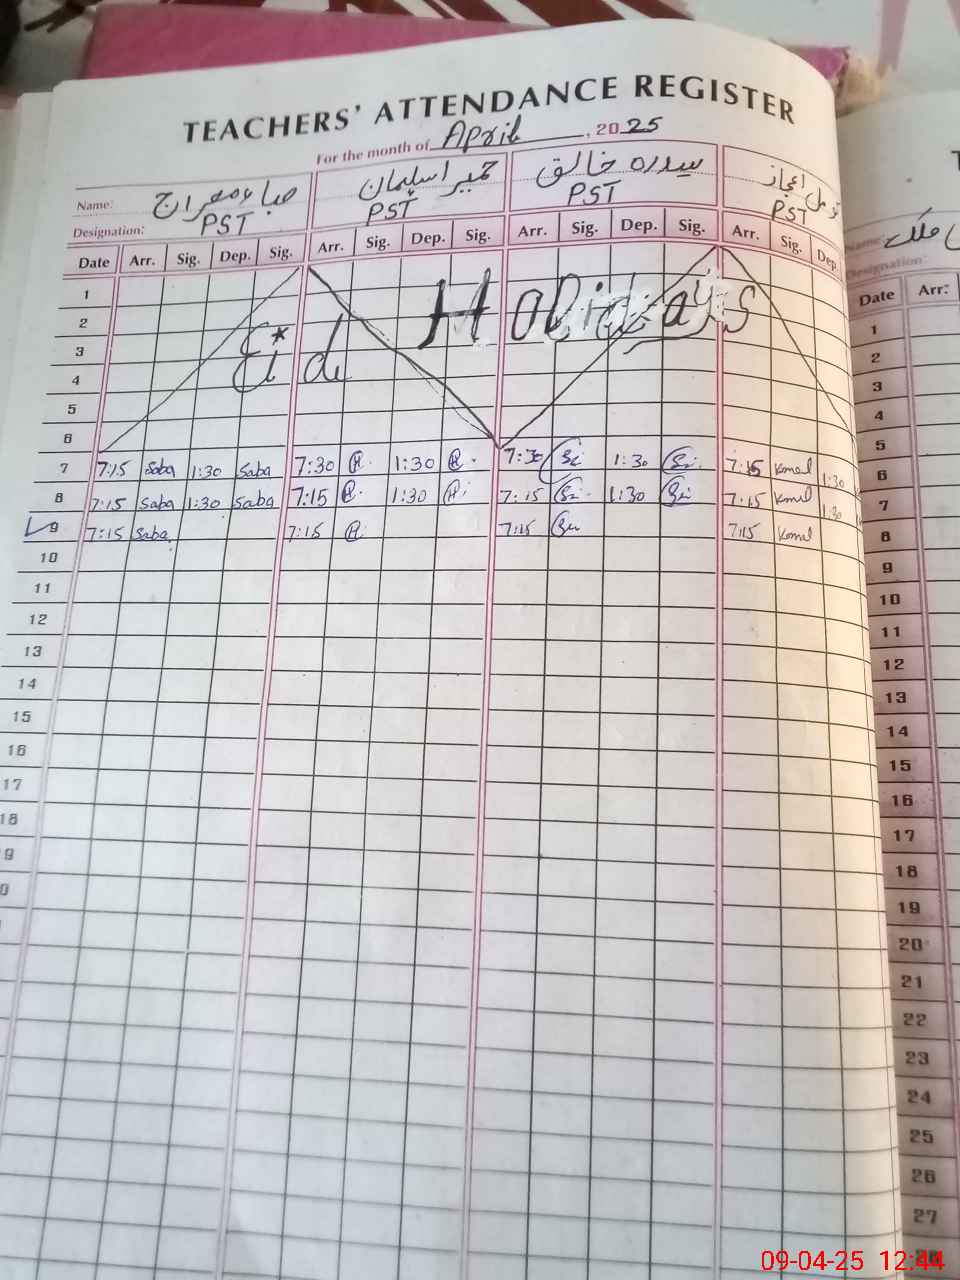 TEACHERS' ATTENDANCE REGISTER
For the month of April, 2025
Name: صباء معراج حمیرا سلیمان سیدرہ خالق کومل اعجاز
Designation: PST PST PST PST
Date Arr. Sig. Dep. Sig. Arr. Sig. Dep. Sig. Arr. Sig. Dep. Sig. Arr. Sig. Dep.
1
2
3
4
5
6
Eid Holidays
7 7:15 Saba 1:30 Saba 7:30 1:30 7:30 1:30 7:15 Komal 1:30
8 7:15 Saba 1:30 Saba 7:15 1:30 7:15 1:30 7:15 Komal 1:30
9 7:15 Saba 7:15 7:15 7:15 Komal
10
11
12
13
14
15
16
17
18
9
0
Name: ملک
Designation:
Date Arr:
1
2
3
4
5
6
7
8
9
10
11
12
13
14
15
16
17
18
19
20
21
22
23
24
25
26
27
09-04-25 12:44